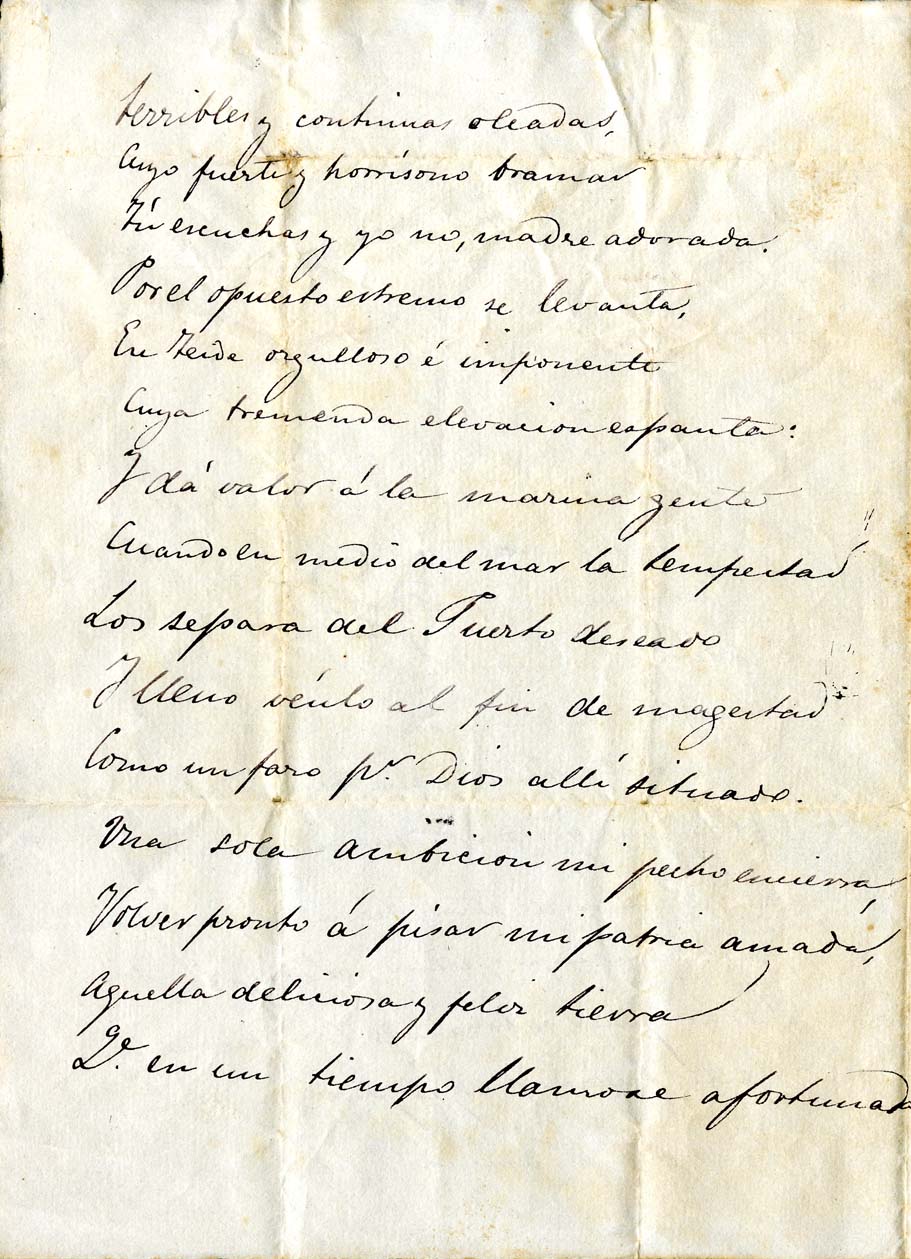 terribles y continuas oleadas,
Cuyo fuerte y horrísono bramar
Tú escuchas y yo no, madre adorada.
Por el opuesto estremo se levanta,
Eu Teide orgulloso é imponente
Cuya tremenda elevacion espanta:
Y dá valor á la marina gente
Cuando en medio del mar la tempestad
Los separa del Puerto deseado
Y lleno vénlo al fin de magestad
Como un faro pr. Dios allí situado.
Una sola ambicion mi pecho encierra,
Volver pronto á pisar mi patria amada,
Aquella deliciosa y feliz tierra
Qe. en un tiempo llamose afortunada